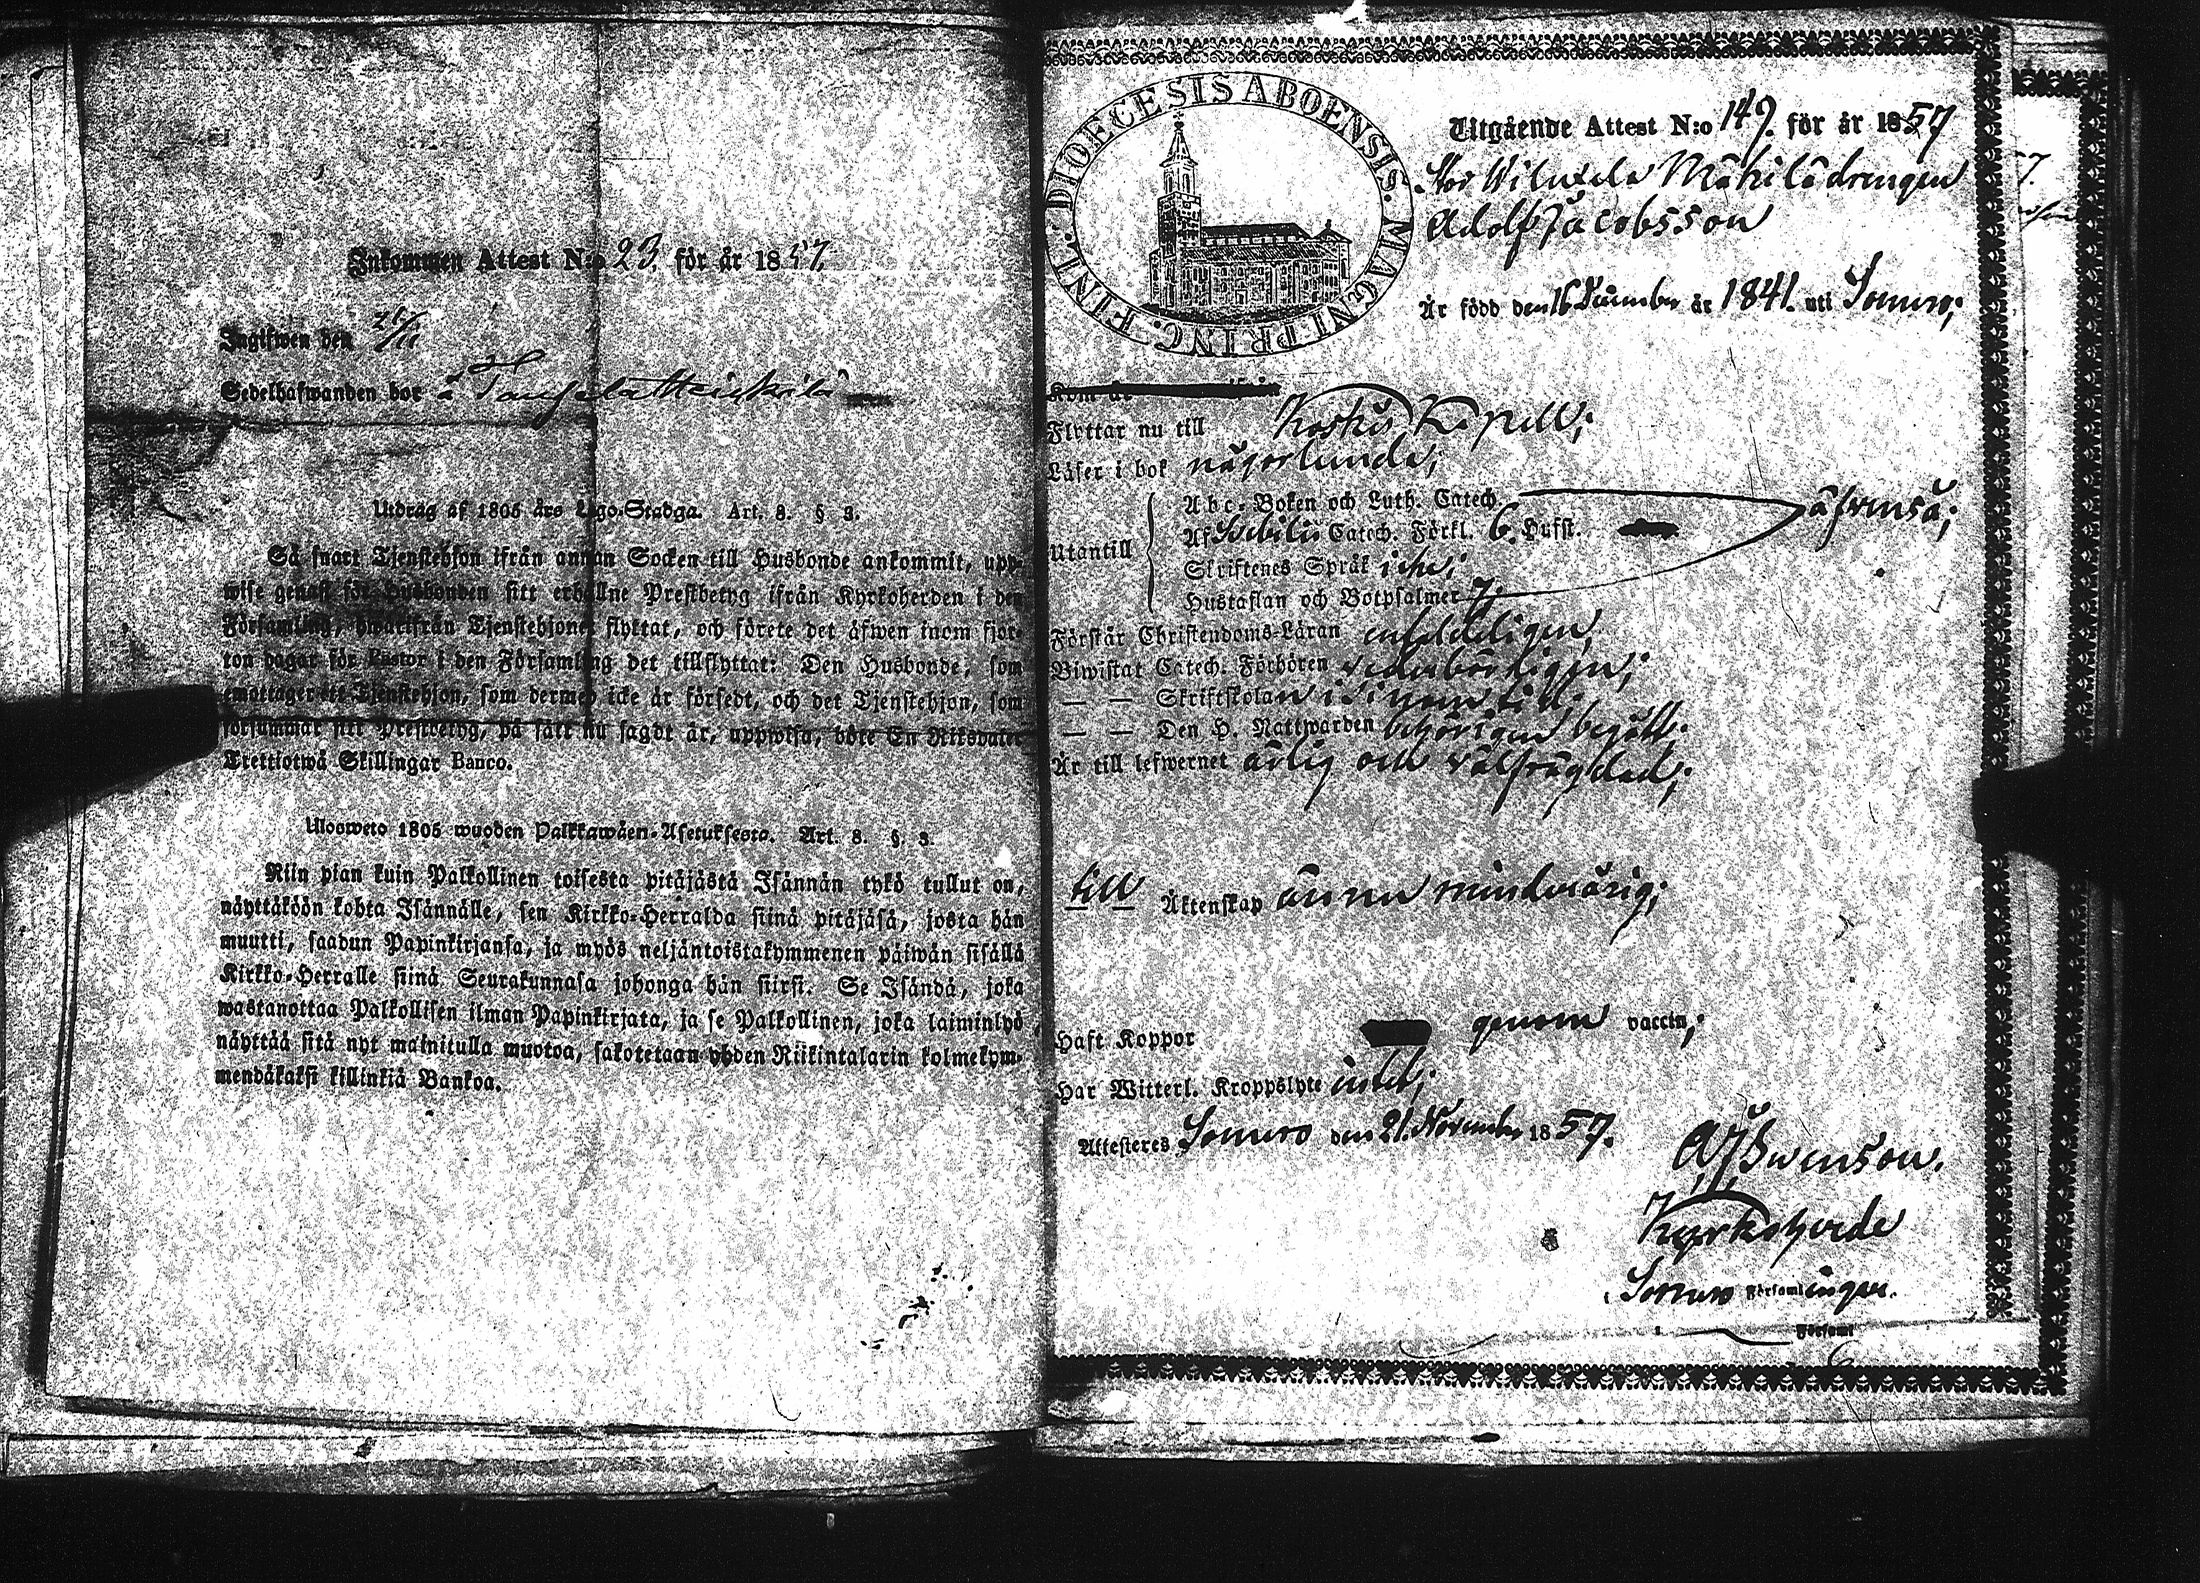 Inkommen Attest N:o 23. för år 1857.
Ingifwen den
Sedelhafwanden bor å
Utdrag af 1805 års Lego-Stadga. Art. 8. § 3.
Så snart Tjenstehjon ifrån annan Socken till Husbonde ankommit, upp-
wise genast för Husbonden sitt erhållne Prestbetyg ifrån Kyrkoherden i den
Församling, hwarifrån Tjenstehjonet flyttat, och förete det äfwen inom fjor-
ton dagar för Pastor i den Församling det tillflyttat: Den Husbonde, som
emottager ett Tjenstehjon, som dermed icke är försedt, och det Tjenstehjon, som
försummar sitt Prestbetyg, på sätt nu sagdt är, uppwisa, böte En Riksdaler
Trettiotwå Skillingar Banco.
Ulosweto 1805 wuoden Palkkawäen-Asetuksesta. Art. 8. §. 3.
Niin pian kuin Palkollinen toisesta pitäjästä Isännän tykö tullut on,
näyttäköön kohta Isännälle, sen Kirkko-Herralda siinä pitäjäsä, josta hän
muutti, saadun Papinkirjansa, ja myös neljäntoistakymmenen päiwän sisällä
Kirkko-Herralle siinä Seurakunnasa johonga hän siirsi. Se Isändä, joka
wastanottaa Palkollisen ilman Papinkirjata, ja se Palkollinen, joka laiminlyö
näyttää sitä nyt mainitulla muotoa, sakotetaan yhden Riikintalarin kolmekym-
mendäkaksi killinkiä Bankoa.
DIOECESIS ABOENSIS. MAGNI PRINC. FINL.
Utgående Attest N:o 149. för år 1857
Mäkilä drengen
Adolf Jacobsson
Är född den 16 December år 1841. uti Somero;
Kom år
Flyttar nu till Koskis Kapell;
Läser i bok någorlunda;
Utantill
Abc-Boken och Luth. Catech. äfvenså;
Af Sebelii Catech. Förkl. 6. Hufst.
Skriftenes Språk icke;
Hustaflan och Botpsalmer 7.
Förstår Christendoms-Läran enfaldeligen,
Biwistat Catech. Förhören vederbörligen;
— — Skriftskolan i sinom tid.
— — Den H. Nattwarden behörigen begått.
Är till lefwernet ärlig och välfrägdad;
till Äktenskap ännu minderårig;
Haft Koppor genom vaccin;
Har Witterl. Kroppslyte intet;
Attesteres Somero den 21. November 1857.
A J Swenson.
Kyrkoherde
i Somero Församlingar.
Församl